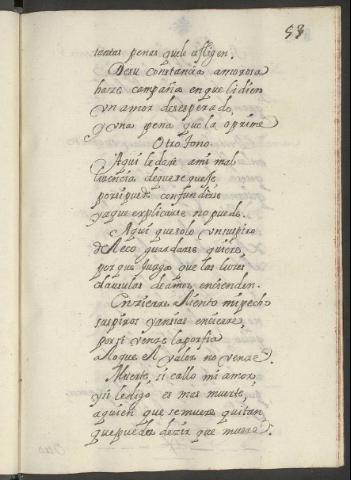 53
tantas penas que le afligen.
De su constancia amorosa
haze campaña en que lidien
un amor desesperado,
y una pena que la oprime
Otro tono
Aqui le daré a mi mal
licencia de que se quexe
por si puede confundirse
ya que explicarse no puede.
Aqui que solo un suspiro
de Aeco guardarse quiere,
por que juzga que las luces
clausulas de amor encienden.
En zierra Aliento mi pecho
suspiros y ansias encierre,
por si venze la porfia
Lo que el valor no venze.
Muerte, si callo mi amor
y si le digo es mas muerte,
a quien que se muere quitan
que pueda dezir que muere.